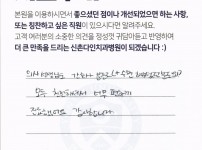 본원을 이용하시면서 좋으셨던 점이나 개선되었으면 하는 사항,
또는 칭찬하고 싶은 직원이 있으시다면 알려주세요.
고객 여러분의 소중한 의견을 정성껏 귀담아듣고 반영하여
더 큰 만족을 드리는 신촌다인치과병원이 되겠습니다 :)
의사 선생님
모두 친절하셔서 너무 편하게
감사합니다